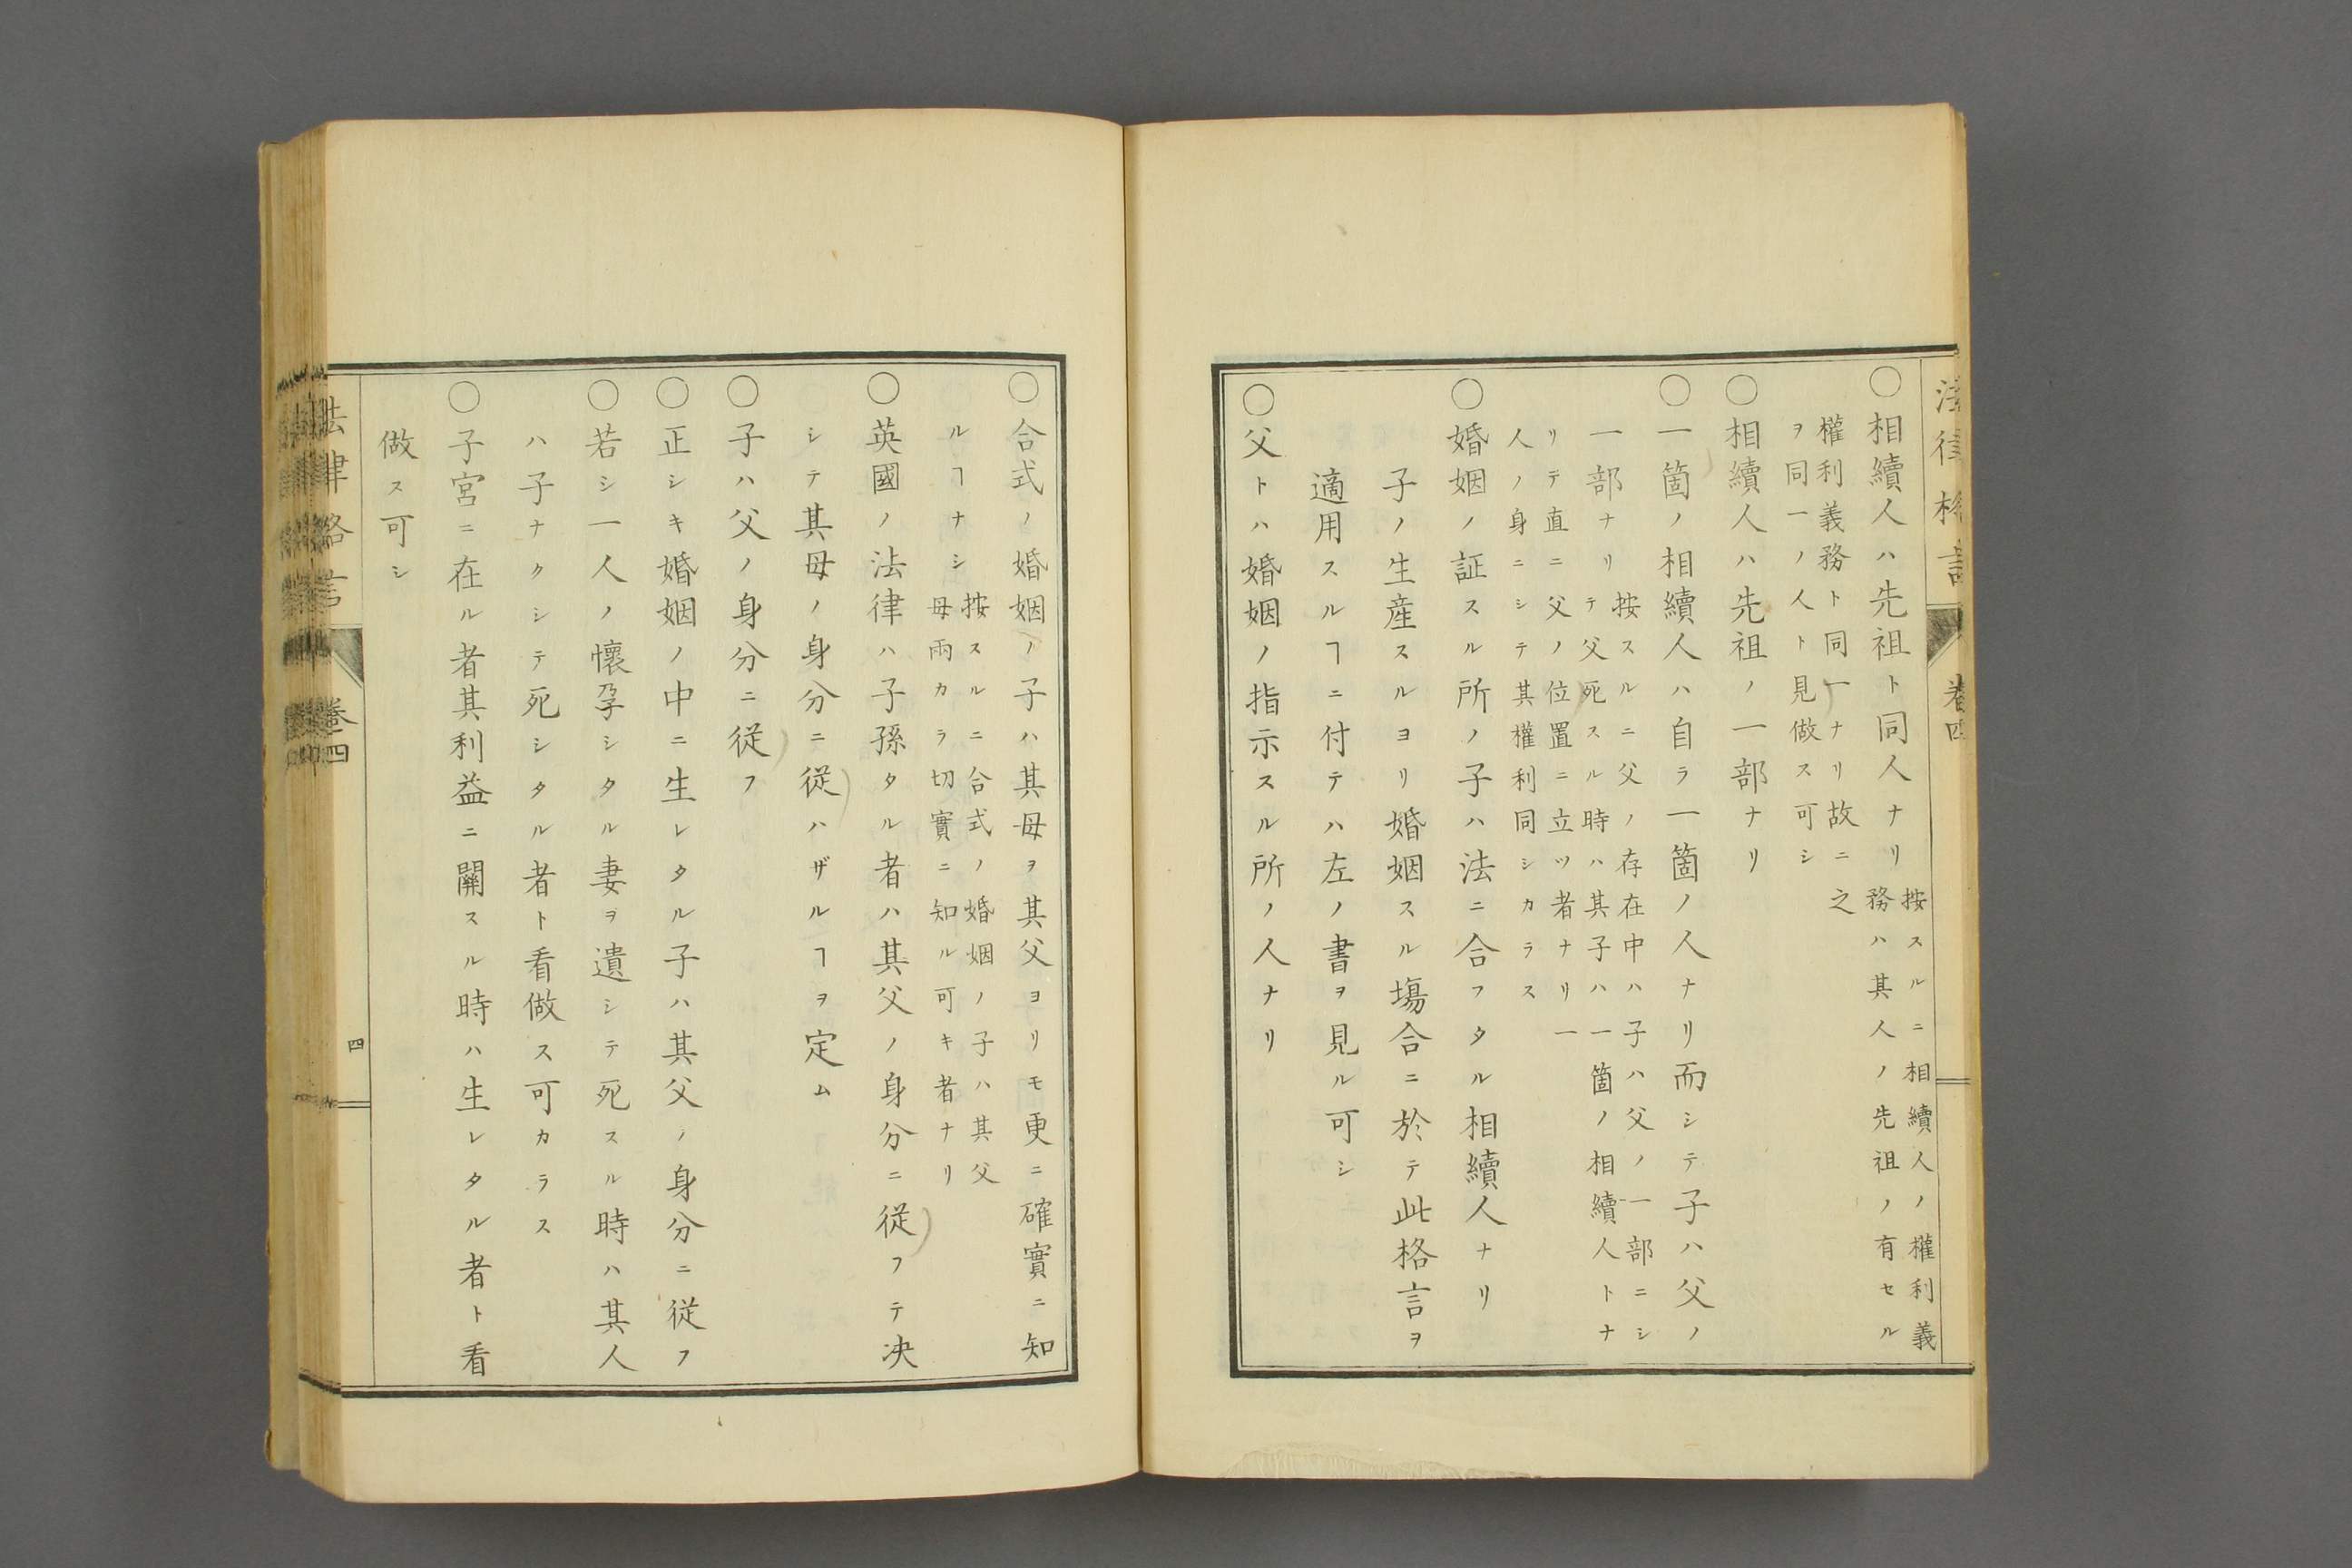 法律格言
卷四
○相續人ハ先祖ト同人ナリ
按スルニ相續人ノ權利義
務ハ其人ノ先祖ノ有セル
權利義務ト同一ナリ故ニ之
ヲ同一ノ人ト見做ス可シ
○相續人ハ先祖ノ一部ナリ
○一箇ノ相續人ハ自ラ一箇ノ人ナリ而シテ子ハ父ノ
一部ナリ
按スルニ父ノ存在中ハ子ハ父ノ一部ニシ
テ父死スル時ハ其子ハ一箇ノ相續人トナ
リテ直ニ父ノ位置ニ立ツ者ナリ一
人ノ身ニシテ其權利同シカラス
○婚姻ノ証スル所ノ子ハ法ニ合フタル相續人ナリ
子ノ生産スルヨリ婚姻スル塲合ニ於テ此格言ヲ
適用スルヿニ付テハ左ノ書ヲ見ル可シ
○父トハ婚姻ノ指示スル所ノ人ナリ
○合式ノ婚姻ノ子ハ其母ヲ其父ヨリモ更ニ確實ニ知
ルヿナシ
按スルニ合式ノ婚姻ノ子ハ其父
母兩カラ切實ニ知ル可キ者ナリ
○英國ノ法律ハ子孫タル者ハ其父ノ身分ニ從フテ决
シテ其母ノ身分ニ從ハザルヿヲ定ム
○子ハ父ノ身分ニ從フ
○正シキ婚姻ノ中ニ生レタル子ハ其父ノ身分ニ從フ
○若シ一人ノ懷孕シタル妻ヲ遺シテ死スル時ハ其人
ハ子ナクシテ死シタル者ト看做ス可カラス
○子宮ニ在ル者其利益ニ關スル時ハ生レタル者ト看
做ス可シ
法律格言
卷四
四